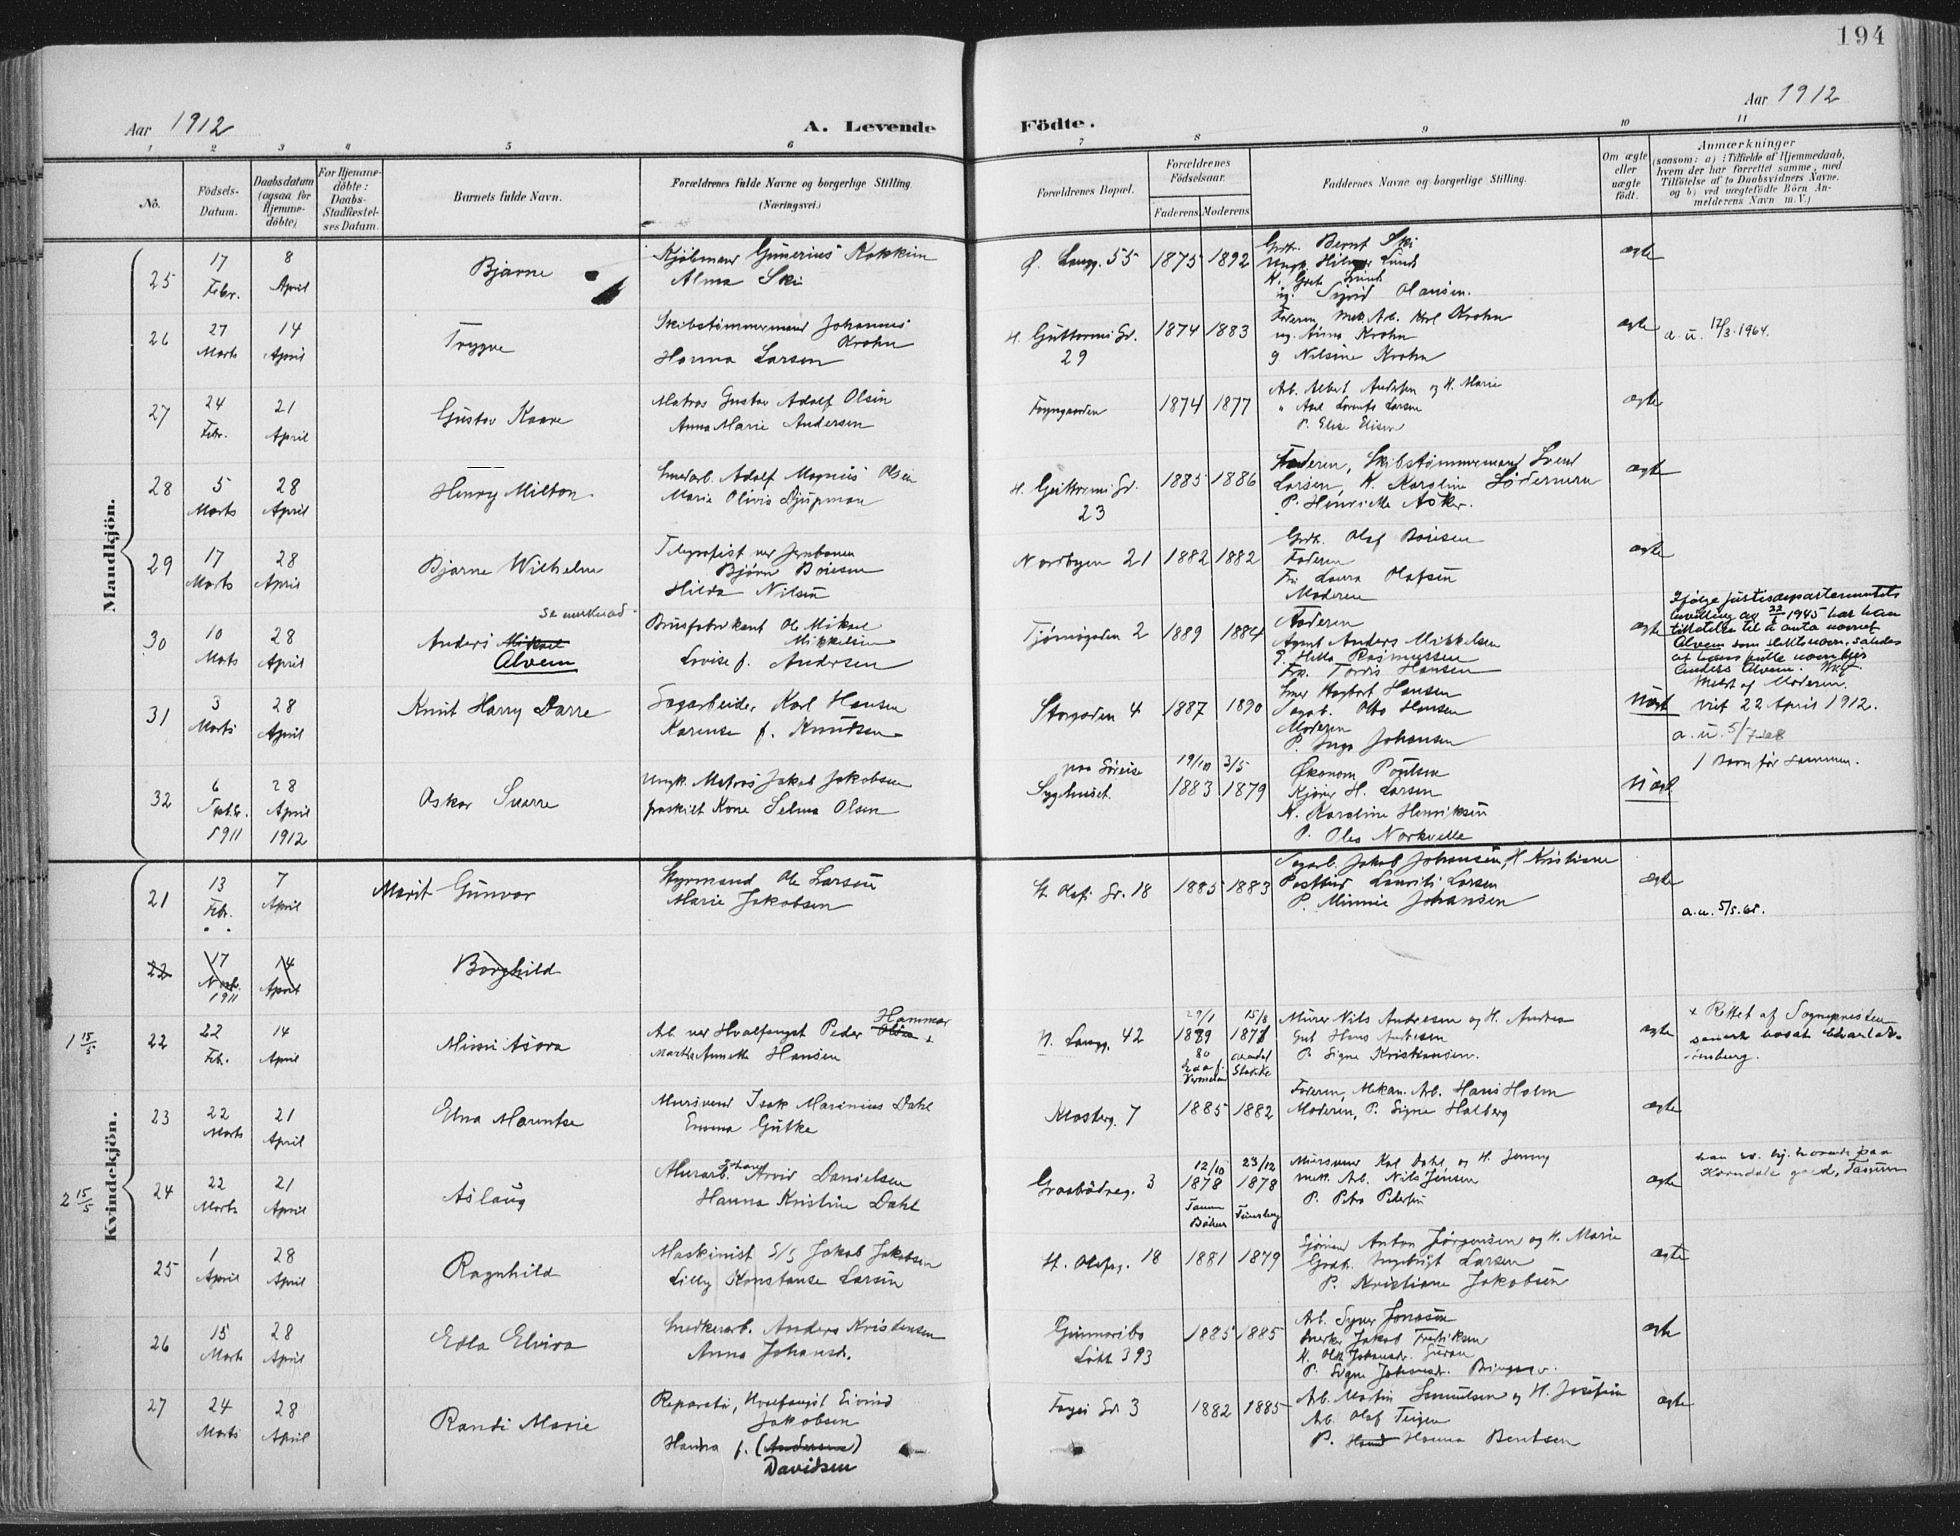 194
Aar 1912
A. Levende Födte.
Aar 1912
1 2 3 4 5 6 7 8 9 10 11
No.
Födsels-Datum.
Daabsdatum (ogsaa for Hjemme-döbte)
For Hjemme-döbte: Daabs-Stadfæstel-ses Datum.
Barnets fulde Navn.
Forældrenes fulde Navne og borgerlige Stilling. (Næringsvei.)
Forældrenes Bopæl.
Forældrenes Födselsaar.
Faderens. Moderens
Faddernes Navne og borgerlige Stilling.
Om ægte eller uægte födt.
Anmærkninger
(saasom: a) i Tilfælde af Hjemmedaab,
hvem der har forrettet samme, med
Tilföielse af to Daabsvidners Navne.
og b) ved uægtefödte Börn An-
melderens Navn m. V.)
Mandkjön.
25 17 Febr. 8 April Bjarne
Kjøbmand Gunerius Kokkim
Alma Ski
Ø. Langg. 55 1875 1892
Grdbr. Bernt Ski
Ungk. Hilmar Lund
K. Grete Lund
ug. Sigrid Olausen.
ægte
26 27 Marts 14 April Trygve
Skibstømmermand Johannes Krohn
Hanna Larsen
H. Guttorms Gd. 29 1874 1883
Faderen, Mek. Arb. Karl Krohn
ug. Anna Krohn
g Nilsine Krohn
ægte a. u. 17/3-1964.
27 24 Febr. 21 April Gustav Kaare
Matros Gustav Adolf Olsen
Anna Marie Andersen
Foyngaarden 1874 1877
Arb. Albert Andersen og H. Marie
" Axel Lorents Larsen
P. Elise Elisen
ægte
28 5 Marts 28 April Henry Milton
Smedarb. Adolf Magnus Olsen
Marie Olivia Djupman
H. Guttorms Gd. 23 1885 1886
Faderen, Skibstømmermand Svend
Larsen, K. Karoline Södernern
P. Henriette Asker.
ægte
29 17 Marts 28 April Bjarne Wilhelm
Telegrafist ved Jernbanen
Bjørn Boiesen
Hilda Nilsen
Nordbyen 21 1882 1882
Grdb. Olaf Boiesen
Faderen
Fru Laura Olafsen
Moderen
ægte
30 10 Marts 28 April Anders Mikael
se merknad
Alvem
Brusfabrikant Ole Mikael Mikkelsen
Lovise f. Andersen
Tjømegaden 2 1889 1884
Faderen
Agent Anders Mikkelsen
E. Hilda Rasmussen
Frk. Tordis Hansen
ægte
Ifølge Justisdepartementets
bevilling av 22/1 1945 har han
tillatelse til å anta navnet
Alvem som slektsnavn, således
at hans fulle navn blir
Anders Alvem.
31 3 Marts 28 April Knut Harry Darre
Sagarbeider Karl Hansen
Karense f. Knudsen
Storgaden 4 1887 1890
Smed Hagbart Hansen
Sagarb. Otto Hansen
Moderen
P. Inga Johansen
uægte
Meldt af Moderen.
vist 22 April 1912.
a. u. 5/7-28
32 6 Septbr. 1911 28 April 1912 Oskar Svarre
Ungk. Matros Jakob Jakobsen
fraskilt Kone Selma Olsen
Sygehuset. 19/10 1883 3/5 1879
Økonom Poulsen
Kjører H. Larsen
K. Karoline Henriksen
P. Olea Norkvelle
uægte
1 Barn før sammen.
Kvindekjön.
21 13 Febr. 7 April Marit Gunvor
Styrmand Ole Larsen
Marie Jakobsen
St. Olafs Gd. 18 1885 1883
Sagarb. Jakob Johansen, H Kristiane
Postbud Laurits Larsen
P. Minnie Johansen
ægte a. u. 5/5. 65.
22 17 1911 14 April Borghild
1 15/5
22 22 Feb. 14 April Mimi Asora
Arb. ved Hvalfangst Peder Hammar Olsen +
Marthe Annette Hansen
N. Langg. 42 29/1 1879 80 15/8 1871
Murer Nils Andresen og H. Andrea
Gut Hans Andresen
P. Signe Kristiansen.
ægte
+ Rettet af Sognepresten
23 22 Marts 21 April Elna Marentse
Mursvend Isak Marinius Dahl
Emma Gutke
Klosterg. 7 1885 1882
Faderen, Mekan. Arb. Hans Holm
Moderen, P. Signe Holberg
ægte
2 15/5
24 22 Marts 21 April Aslaug
Murarb. Johan Arvid Danielsen
Hanna Kristine Dahl
Graabrødreg. 3 12/10 1878 23/12 1878
Mursvend Karl Dahl og H. Jenny
Mek. Arb. Nils Jensen
P. Petra Pedersen
ægte
25 1 April 28 April Ragnhild
Maskinist S/S Jakob Jakobsen
Lilly Konstanse Larsen
St. Olafsg. 18 1881 1879
Sjømand Anton Jørgensen og H. Marie
Grdb. Ingebrigt Larsen
P. Kristiane Jakobsen
ægte
26 15 Marts 28 April Edla Elvira
Snedkerarb. Anders Kristensen
Anna Johansd.
Gunnarsbo Løkk 393 1885 1885
Arb. Syver Jonasen
Snedker Jakob Fredriksen
P. Signe Johansd.
ægte
27 24 Marts 28 April Randi Marie
Reparatør, Hvalfangst Eivind Jakobsen
Hanna f. (Andersen)
Davidsen
Foyns Gd. 3 1882 1885
Arb. Martin Samuelsen og H. Josefine
Arb. Olaf Teigen
P. Hanna Bentsen
ægte